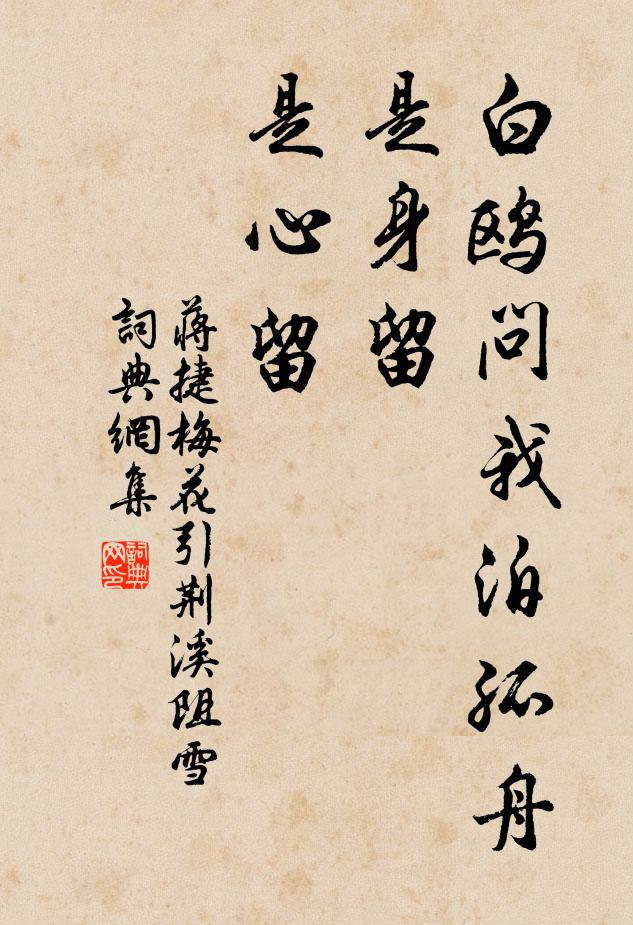 白鸥問我泊孤舟
是身留
是心留
蔣捷梅花引荆溪阻雪
詞典網集
詞典网印